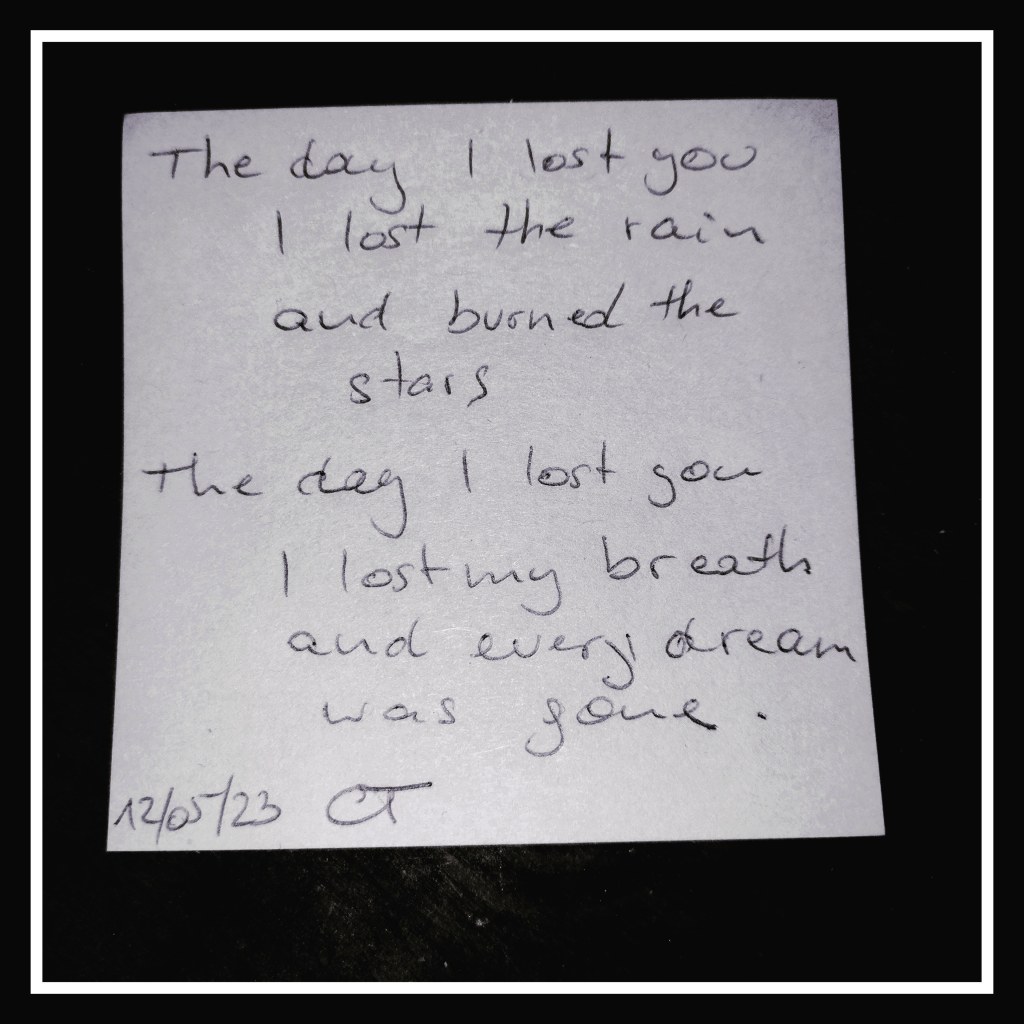 The day I lost you
I lost the rain
and burned the
stars
The day I lost you
I lost my breath
and every dream
was gone.
12/05/23 CT